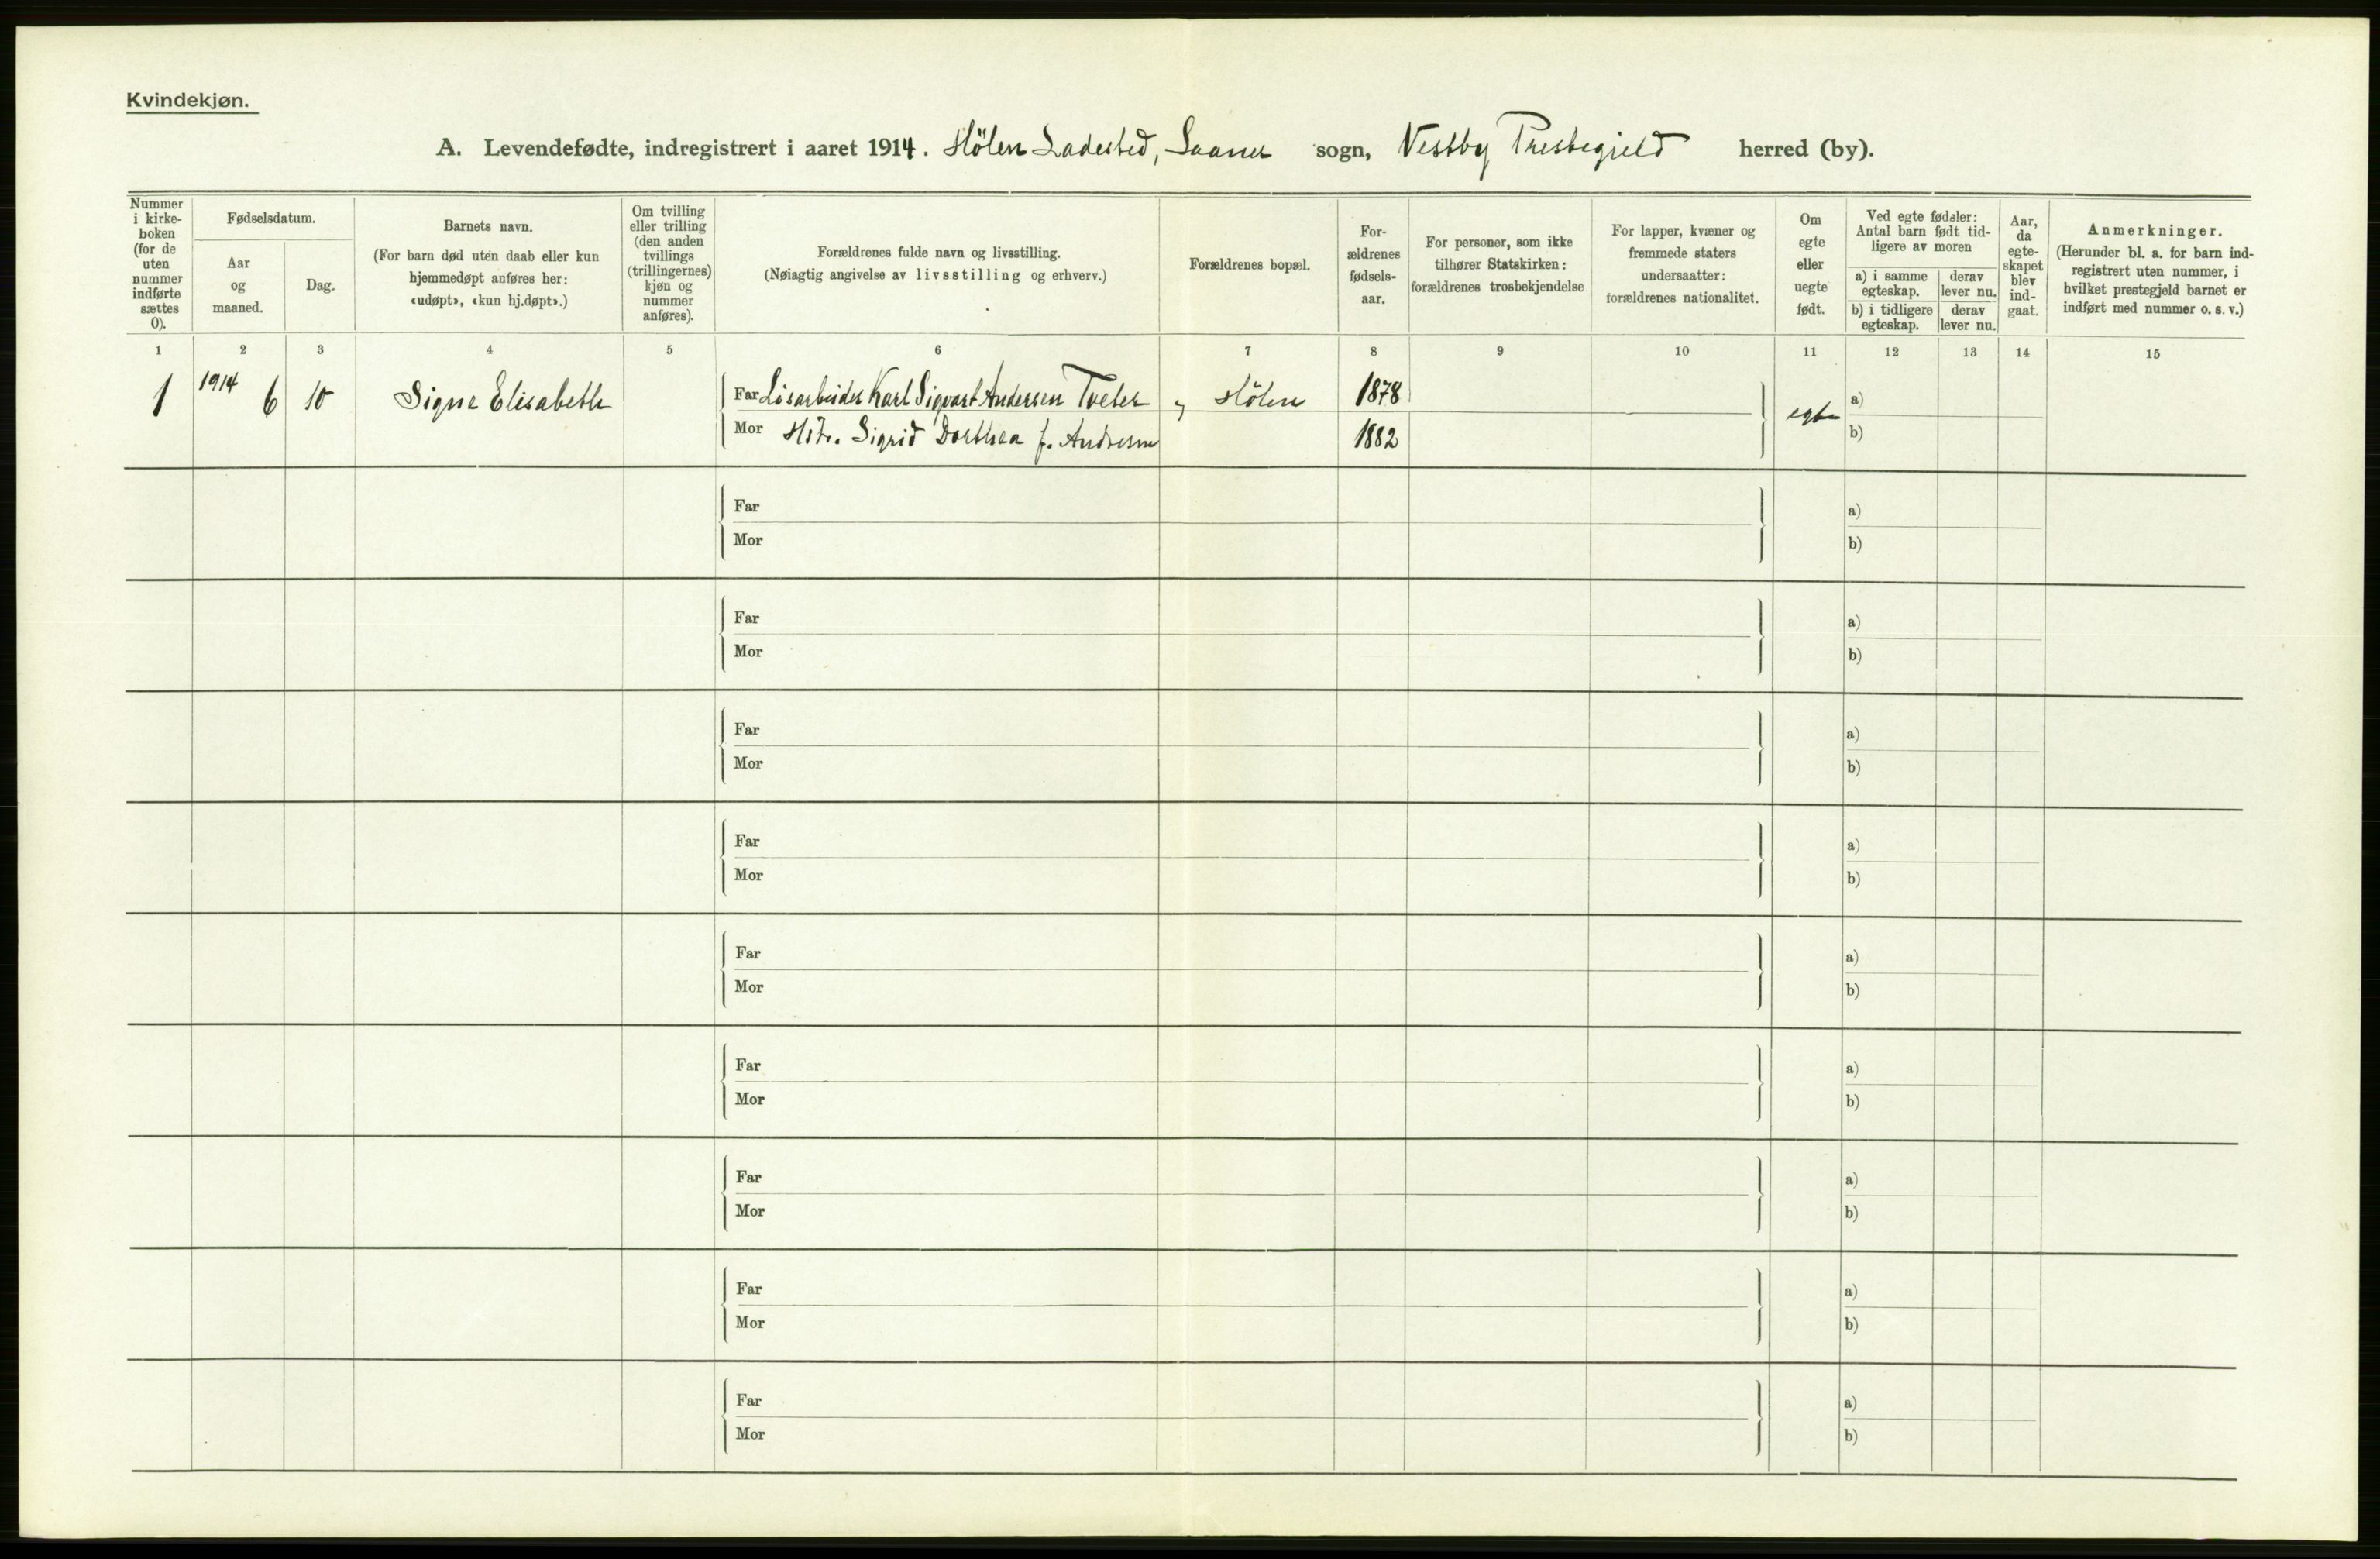 Kvindekjøn.
A. Levendefødte, indregistrert i aaret 1914. Hölen Ladested, Saaner sogn, Vestby Prestegield herred (by).
Nummer i kirke-boken (for de uten nummer indførte sættes 0).
Fødselsdatum.
Aar og maaned.
Dag.
Barnets navn.
(For barn død uten daab eller kun hjemmedøpt anføres her: «udøpt», «kun hj.døpt».)
Om tvilling eller trilling (den anden tvillings (trillingernes) kjøn og nummer anføres).
Forældrenes fulde navn og livsstilling.
(Nøiagtig angivelse av livsstilling og erhverv.)
Forældrenes bopæl.
For-ældrenes fødsels-aar.
For personer, som ikke tilhører Statskirken: forældrenes trosbekjendelse
For lapper, kvæner og fremmede staters undersaatter: forældrenes nationalitet.
Om egte eller uegte født.
Ved egte fødsler: Antal barn født tid-ligere av moren
a) i samme egteskap.
derav lever nu.
b) i tidligere egteskap.
derav lever nu.
Aar, da egte-skapet blev ind-gaat.
Anmerkninger.
(Herunder bl. a. for barn ind-registrert uten nummer, i hvilket prestegjeld barnet er indført med nummer o. s. v.)
1 2 3 4 5 6 7 8 9 10 11 12 13 14 15
1 1914 6 10 Signe Elisabeth Far Karl Sigvart Andersen Tveter Hölen 1878 egte a)
Mor Hstr. Sigrid Dorthea f. Andresen 1882 b)
Far a)
Mor b)
Far a)
Mor b)
Far a)
Mor b)
Far a)
Mor b)
Far a)
Mor b)
Far a)
Mor b)
Far a)
Mor b)
Far a)
Mor b)
Far a)
Mor b)